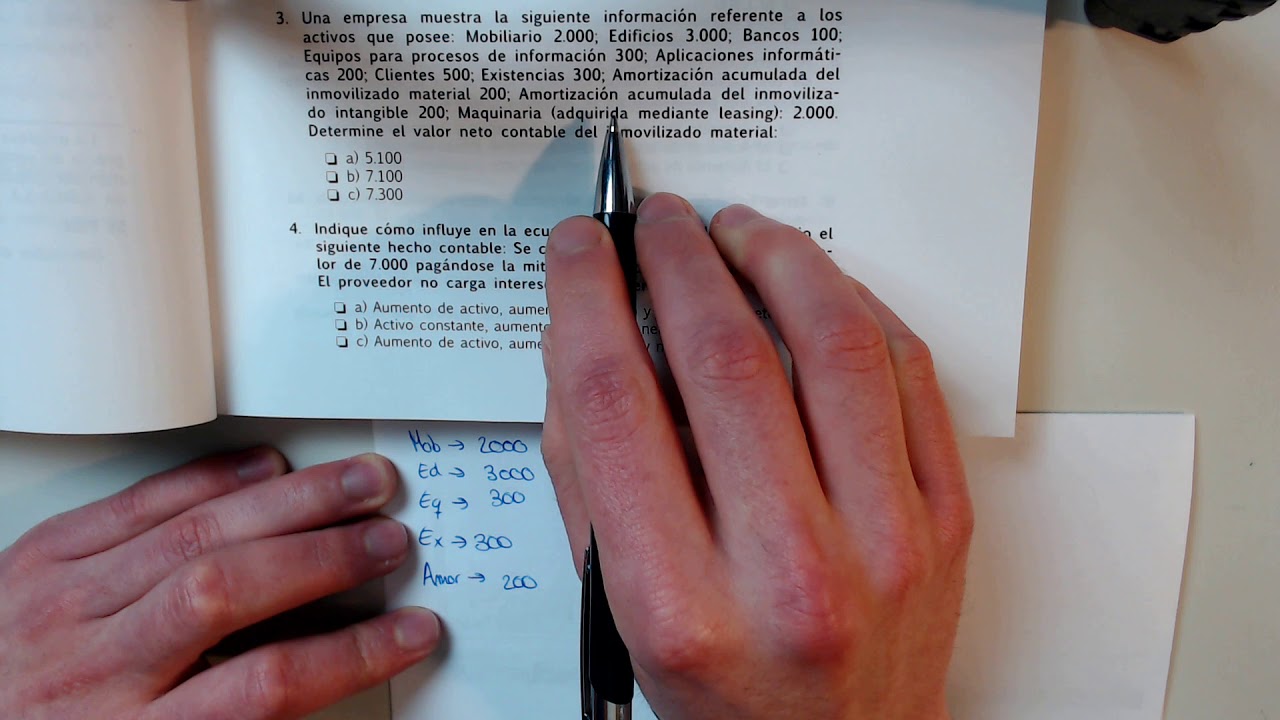 3. Una empresa muestra la siguiente información referente a los
activos que posee: Mobiliario 2.000; Edificios 3.000; Bancos 100;
Equipos para procesos de información 300; Aplicaciones informáti-
cas 200; Clientes 500; Existencias 300; Amortización acumulada del
inmovilizado material 200; Amortización acumulada del inmoviliza-
do intangible 200; Maquinaria (adquirida mediante leasing): 2.000.
Determine el valor neto contable del inmovilizado material:
a) 5.100
b) 7.100
c) 7.300
4. Indique cómo influye en la el
siguiente hecho contable: Se
lor de 7.000 pagándose la
El proveedor no carga
a) Aumento de activo, y
b) Activo constante,
c) Aumento de activo, y
Mob → 2000
Ed → 3000
Eq → 300
Ex → 300
Amor → 200